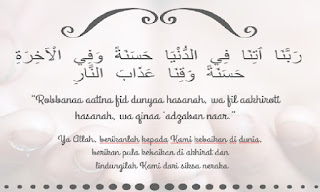 رَبَّنَا آتِنَا فِي الدُّنْيَا حَسَنَةً وَفِي الْآخِرَةِ
حَسَنَةً وَقِنَا عَذَابَ النَّارِ
"Robbanaa aattna fid dunyaa hasanah, wa fil aakhirott
hasanah, wa qinaa 'adzaban naar."
Ya Allah, berikanlah kepada Kami kebaikan di dunia,
berikan pula kebaikan di akhirat dan
lindungilah Kami dari siksa neraka.